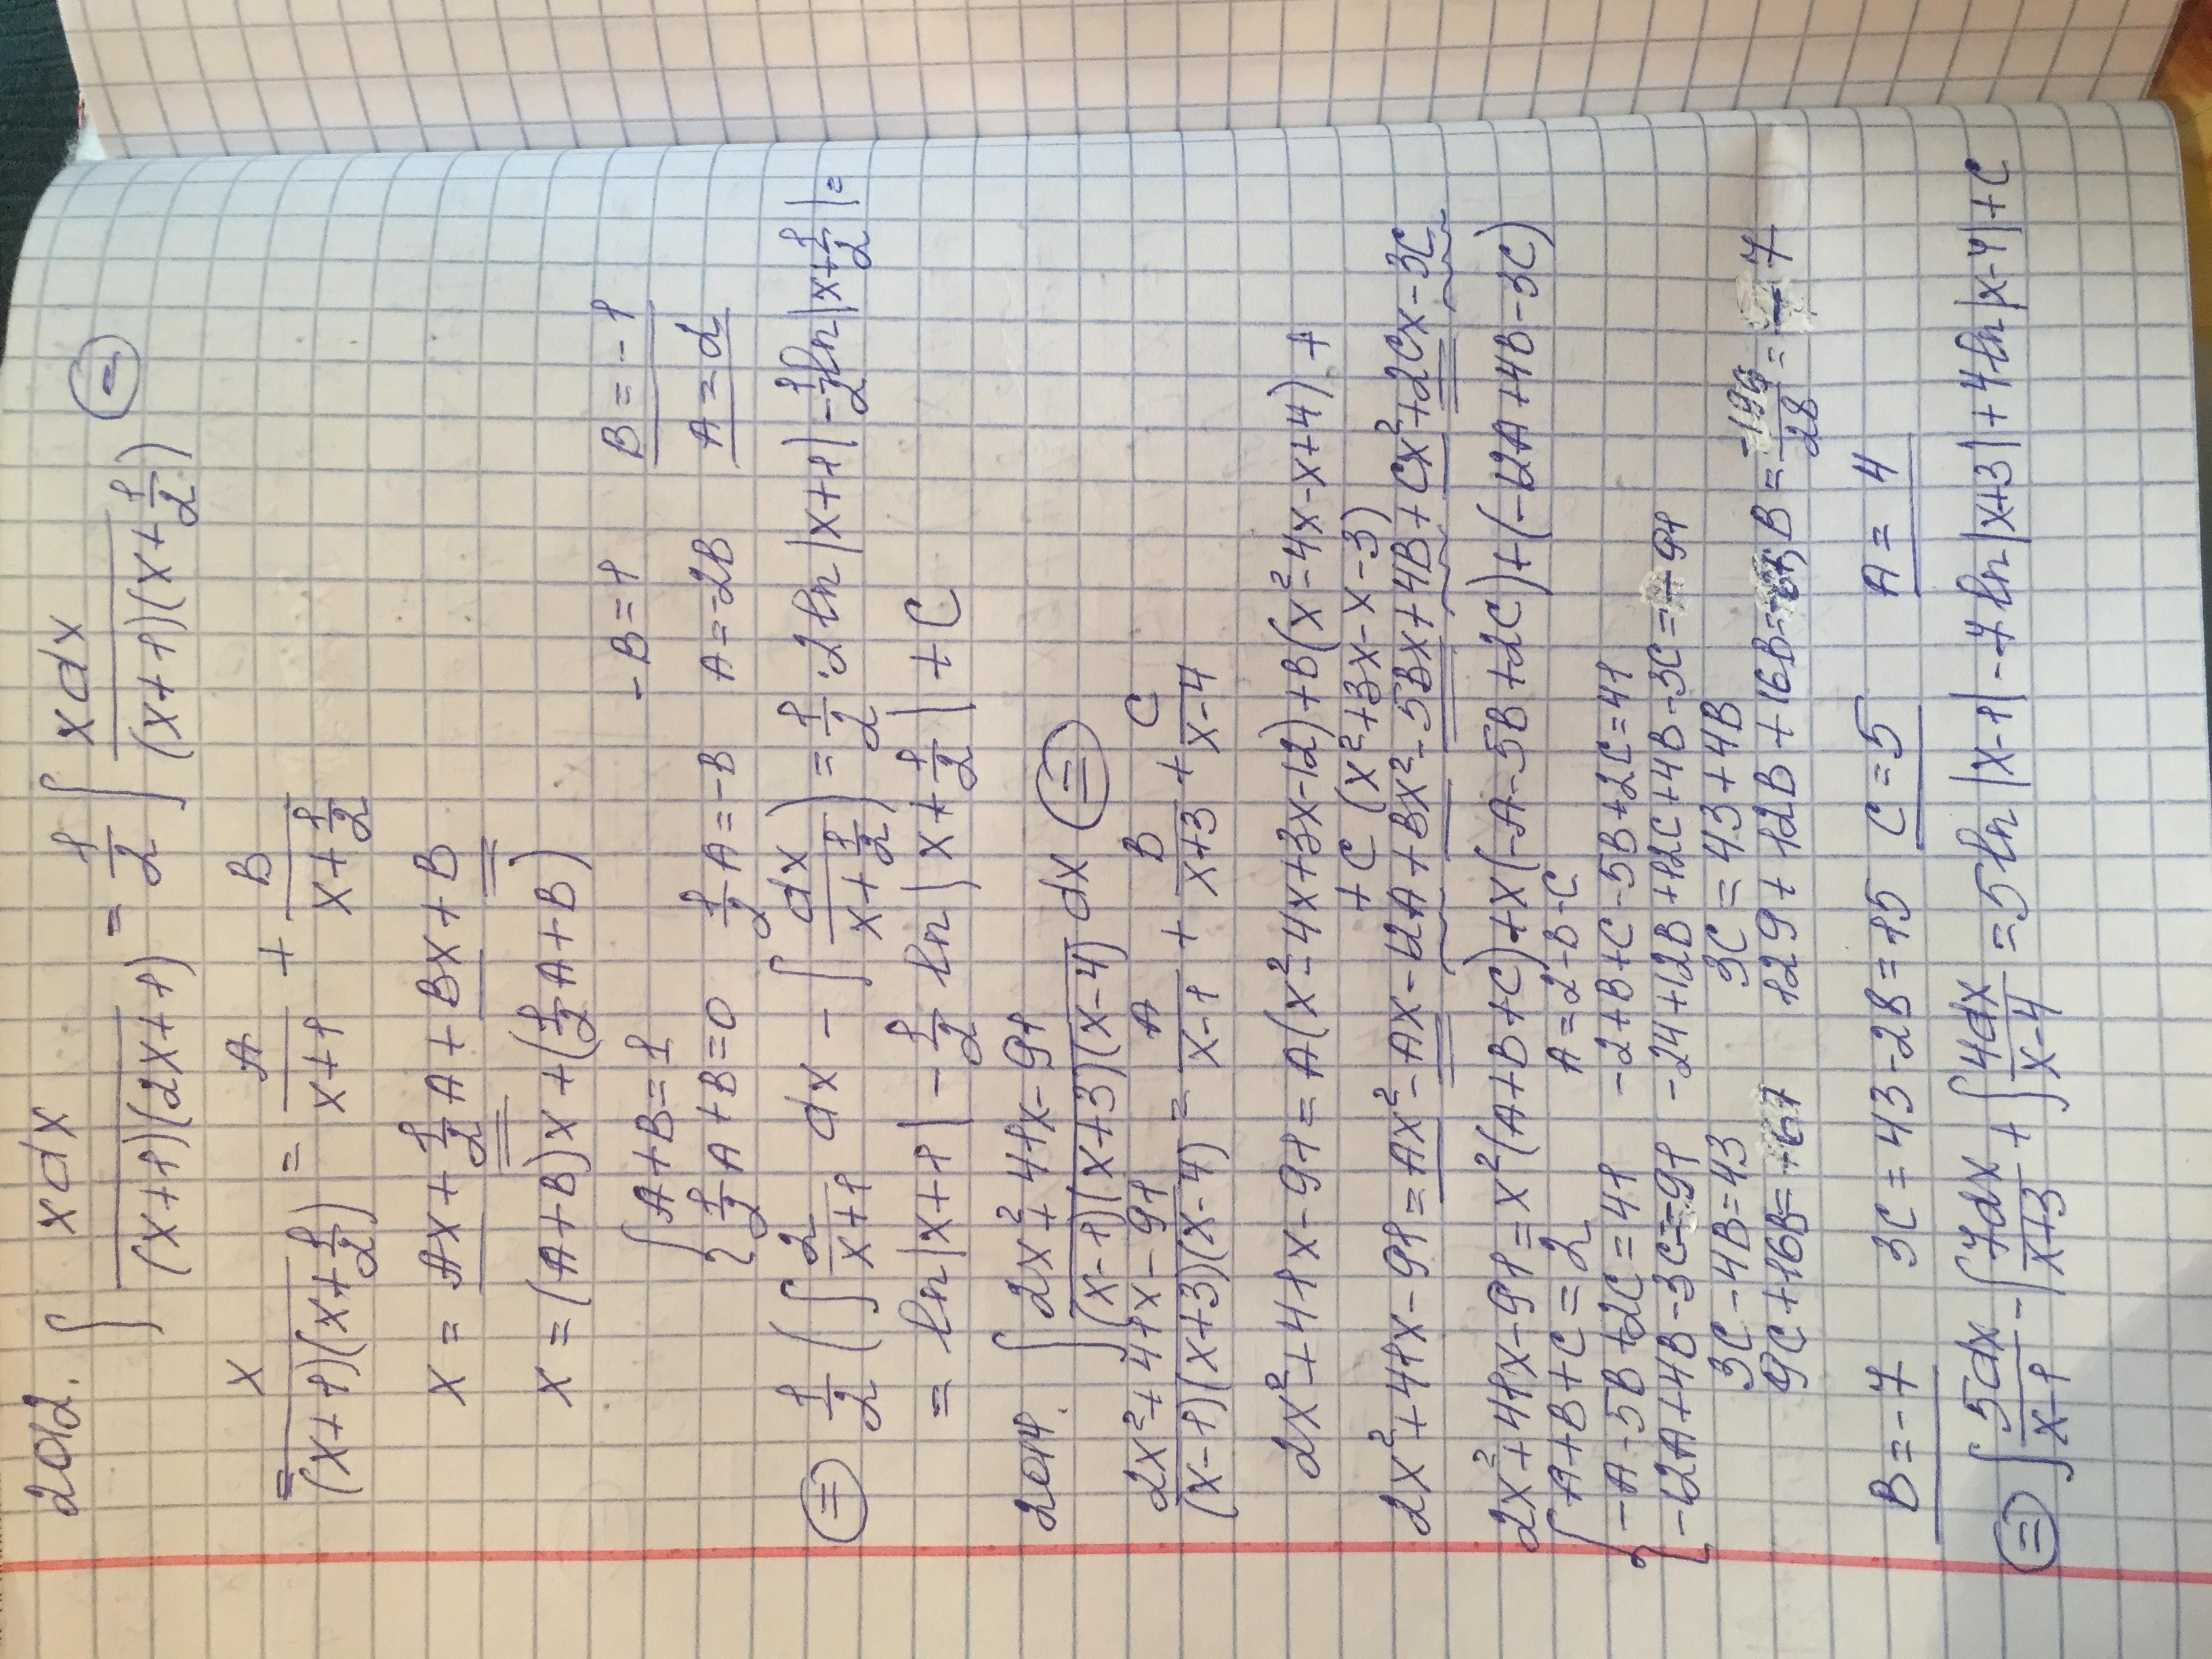 2012. ∫ xdx / (x+1)(2x+1) = 1/2 ∫ xdx / (x+1)(x+1/2) (=)
x / (x+1)(x+1/2) = A / x+1 + B / x+1/2
x = Ax + 1/2 A + Bx + B
x = (A+B)x + (1/2 A + B)
{ A+B=1 -B=1 B=-1
1/2 A+B=0 1/2 A=-B A=-2B A=2
(=) 1/2 (∫ 2 / x+1 dx - ∫ dx / x+1/2) = 1/2 · 2 ln|x+1| - 1/2 ln|x+1/2| =
= ln|x+1| - 1/2 ln|x+1/2| + C
2014. ∫ 2x²+41x-91 / (x-1)(x+3)(x-4) dx (=)
2x²+41x-91 / (x-1)(x+3)(x-4) = A / x-1 + B / x+3 + C / x-4
2x²+41x-91 = A(x²-4x+3x-12)+B(x²-4x-x+4) +
+ C (x²+3x-x-3)
2x²+41x-91 = Ax²-Ax-12A+Bx²-5Bx+4B+Cx²+2Cx-3C
2x²+41x-91 = x²(A+B+C)+x(-A-5B+2C)+(-12A+4B-3C)
{ A+B+C=2 A=2-B-C
-A-5B+2C=41 -2+B+C-5B+2C=41
-12A+4B-3C=-91 -24+12B+12C+4B-3C=-91
3C-4B=43 3C=43+4B
9C+16B=-67 129+12B+16B=-67, B= -196 / 28 = -7
B=-7 3C=43-28=15 C=5 A=4
(=) ∫ 5dx / x-1 - ∫ 7dx / x+3 + ∫ 4dx / x-4 = 5ln|x-1| - 7ln|x+3| + 4ln|x-4| + C